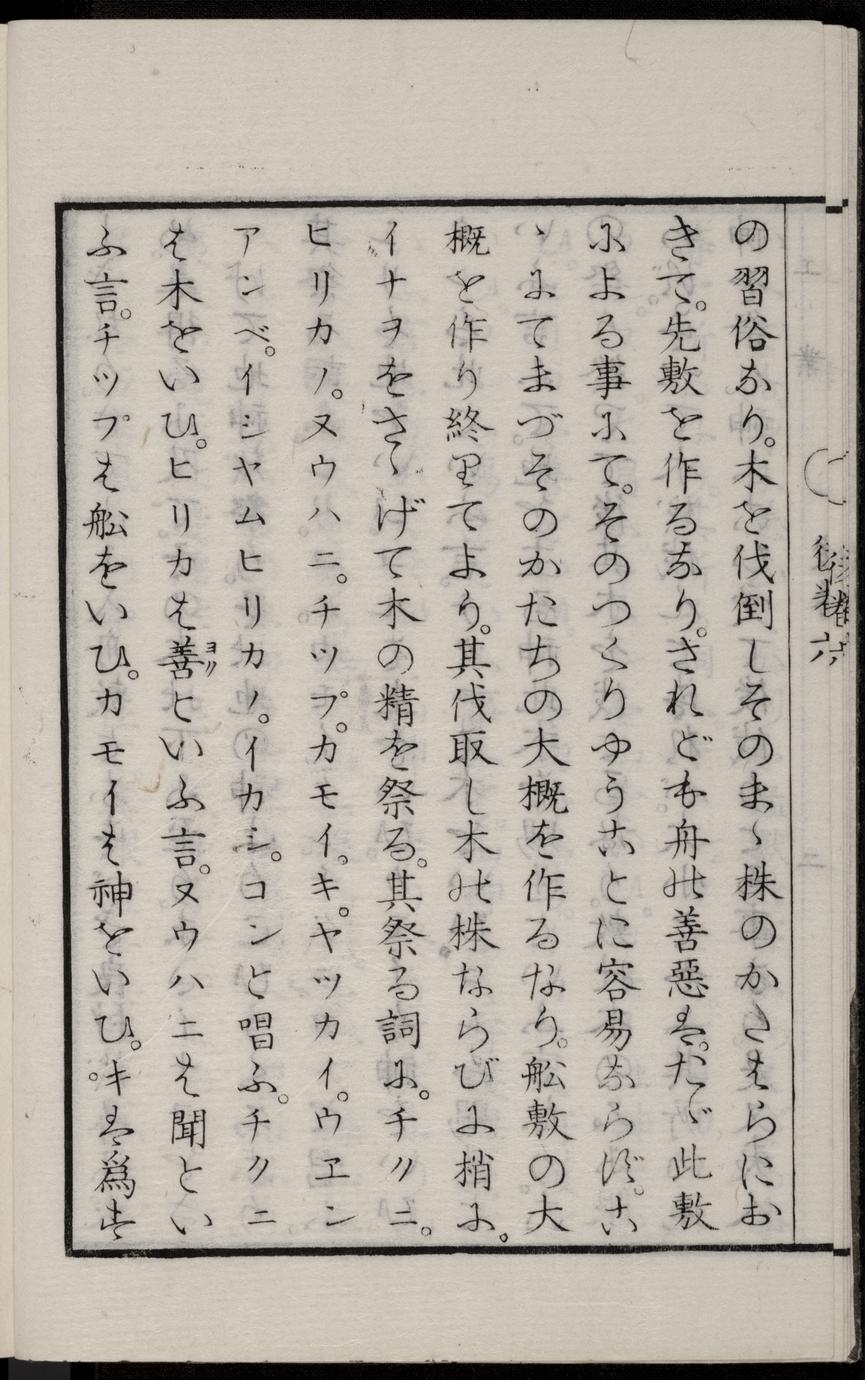 の習俗なり。木を伐倒しそのまゝ株のかたはらにお
きて。先敷を作るなり。されども舟の善惡は。たゞ此敷
による事にて。そのつくりやうことに容易ならず。こ
ゝにてまづそのかたちの大概を作るなり。舩敷の大
概を作り終りてより。其伐取し木の株ならびに梢に。
イナヲをさゝげて木の精を祭る。其祭る詞に。チクニ。
ヒリカノ。ヌウハニ。チツプ。カモイ。キ。ヤツカイ。ウヱン
アンベ。イシヤムヒリカノ。イカシ。コンと唱ふ。チクニ
は木をいひ。ヒリカは善ヨリといふ言。ヌウハニは聞とい
ふ言。チツプは舩をいひ。カモイは神をいひ。キは爲す